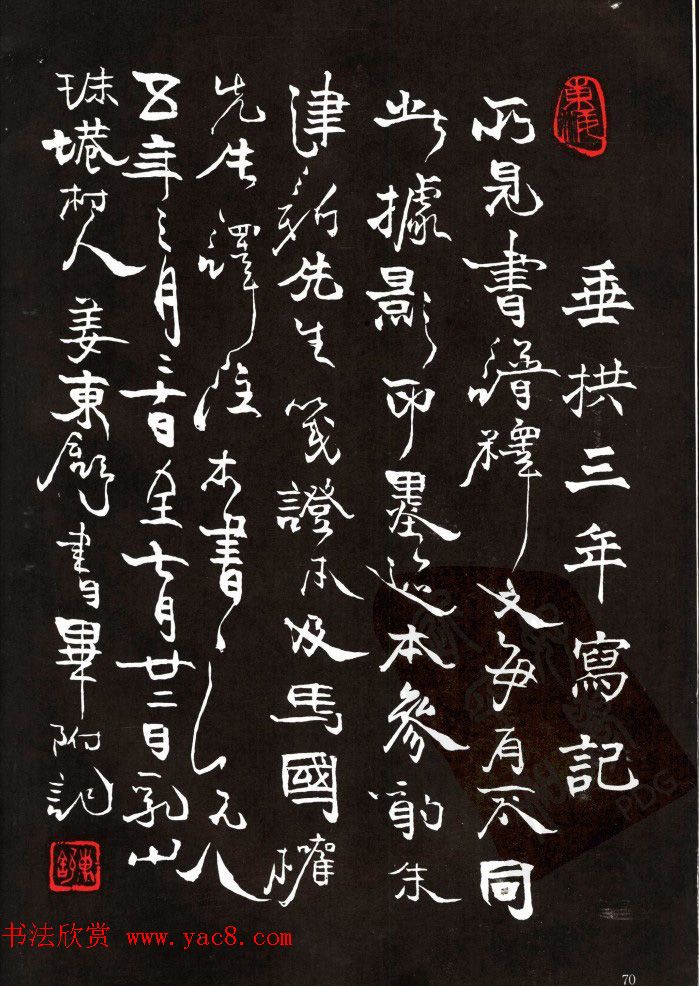 垂拱三年寫記
所見書譜釋文每有不同
此據影印墨迹本參酌朱
建新先生箋證本及馬國權
先生譯注本書之一九八
五年三月日至七月廿二日乳山
珠塔村人姜東舒書畢附記
東舒
书法欣赏 www.yac8.com
PDG
70